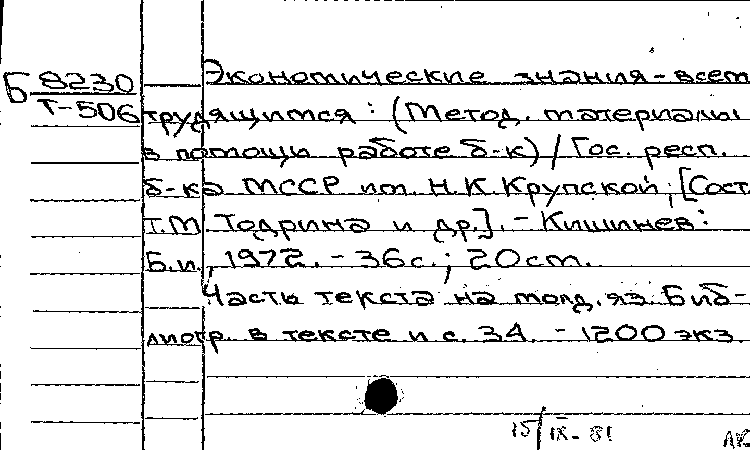 Б 8230
Т-506
Экономические знания - всем
трудящимся: (Метод. материалы
в помощи работе б-к) / Гос. респ.
б-ка МССР им. Н.К. Крупской; [Сост.
Т.М. Тодрина и др.]. - Кишинев:
Б.и., 1972. - 36 с.; 20 cm.
Часть текста на молд. яз. Биб-
лиогр. в тексте и с. 34. - 1200 экз.
15/IX-81